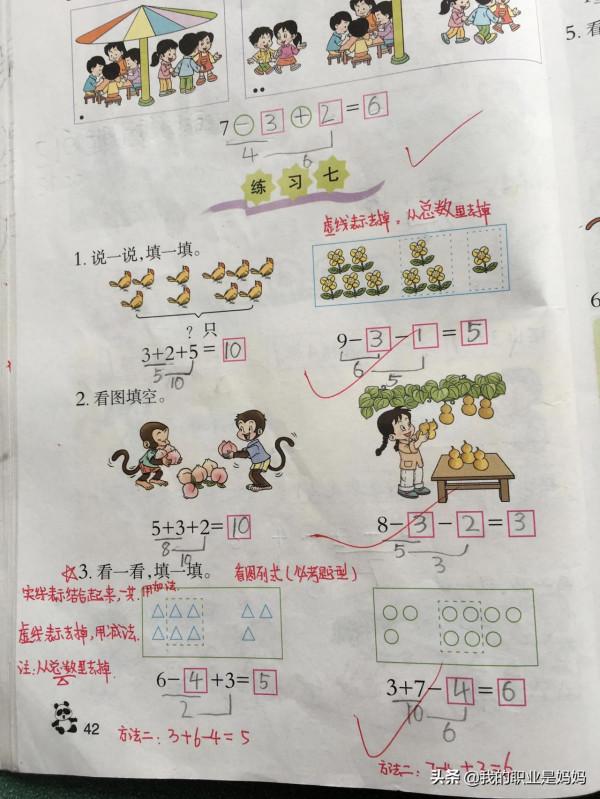 5. 看
7－3＋2＝6
4
6
练习七
虚线表示去掉，从总数里去掉
1. 说一说，填一填。
？只
3+2+5=10
5
10
9－3－1＝5
6
5
2. 看图填空。
5+3+2=10
8
10
8－3－2＝3
5
3
☆3. 看一看，填一填。 看图列式（必考题型）
实线表示结合起来，求. 用加法.
虚线表示去掉，用减法.
注：从总数里去掉
6－4＋3＝5
2
3＋7－4＝6
10
6
42
方法二：3+6-4=5
方法二：7-4+3=6
头条 @我的职业是妈妈